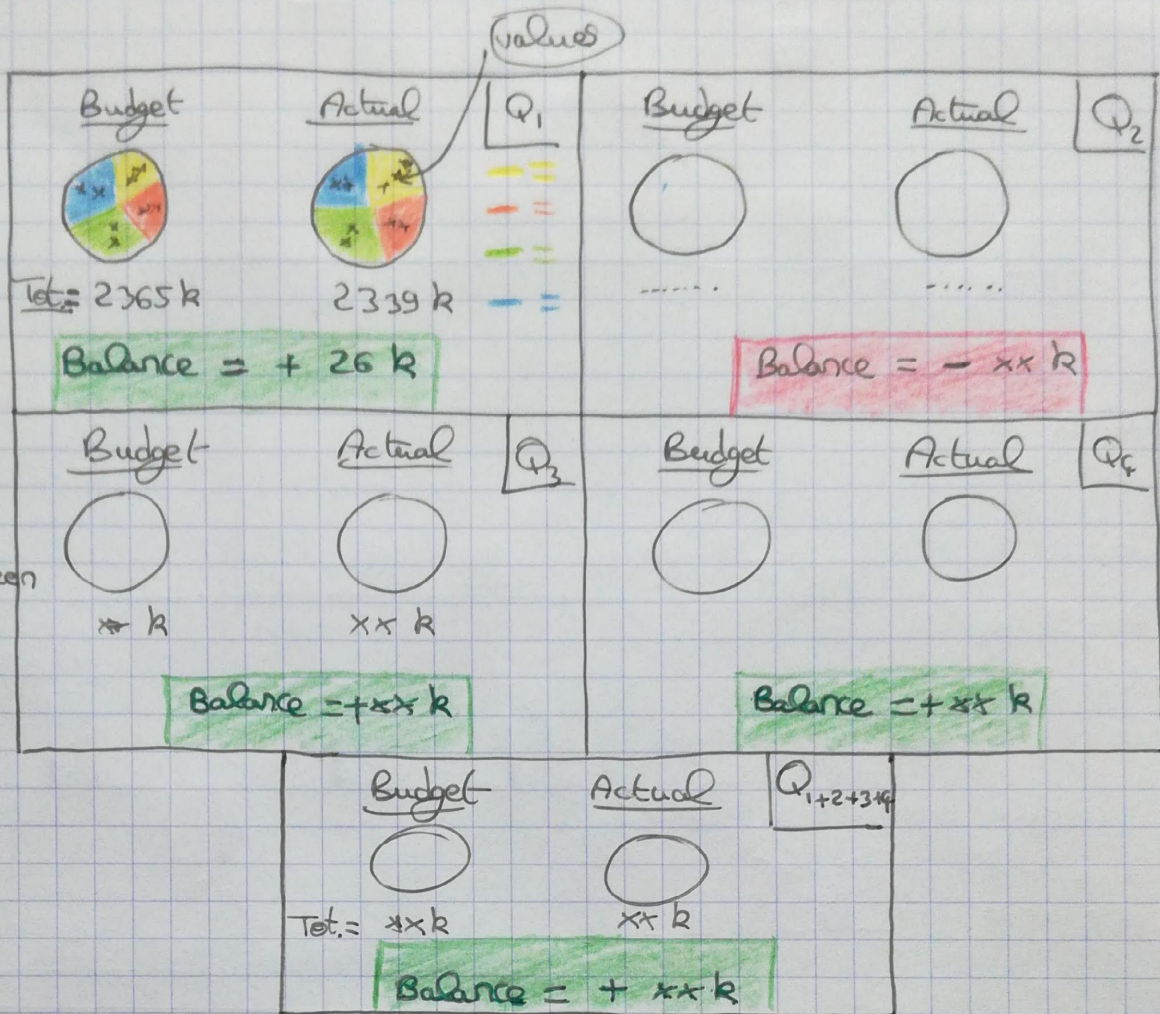 values
Budget Actual Q1
Tot.= 2365 k 2339 k
Balance = + 26 k
Budget Actual Q2
------. ......
Balance = - xx k
Budget Actual Q3
xx k xx k
Balance =+xx k
Budget Actual Q4
Balance =+xx k
Budget Actual Q1+2+3+4
Tot.= xx k xx k
Balance = + xx k